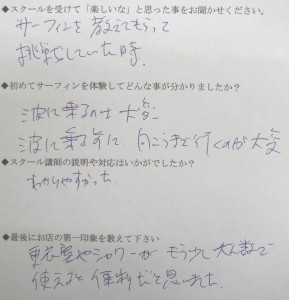 ◆スクールを受けて「楽しいな」と思った事をお聞かせください。
サーフィンを教えてもらって
挑戦していた時。
◆初めてサーフィンを体験してどんな事が分かりましたか?
波に乗るのは大変
波に乗る前に向こうまで行くのが大変
◆スクール講師の説明や対応はいかがでしたか?
わかりやすかった
◆最後にお店の第一印象を教えて下さい
更衣室やシャワーがもう少し大人数で
使えると便利だと思いました。